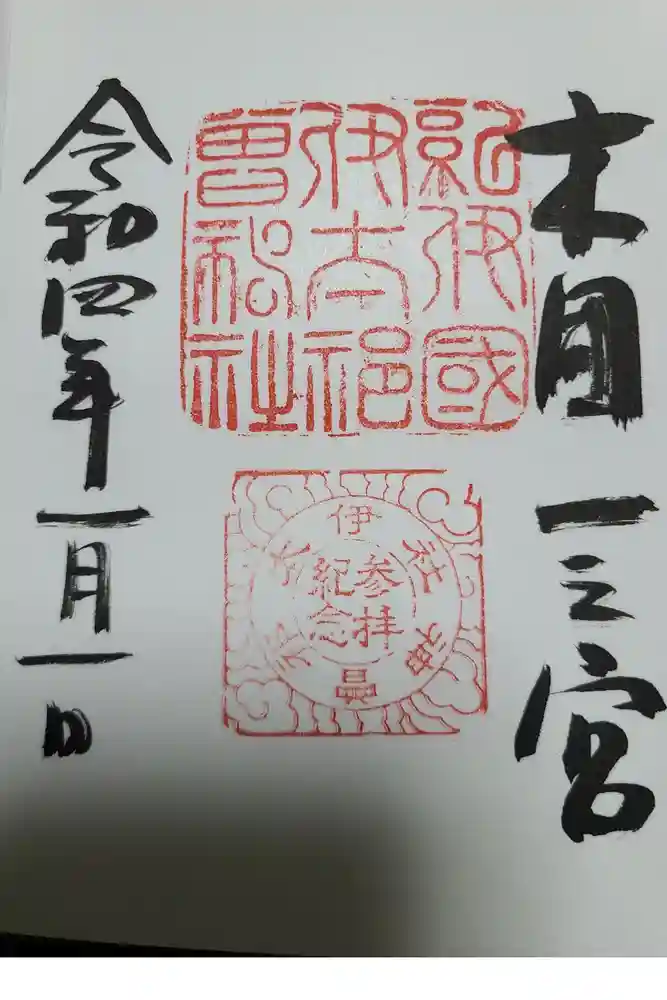 木国一之宮
紀伊國
伊太祁
曾神社
伊太祁曽神社
参拝
紀念
令和四年一月一日